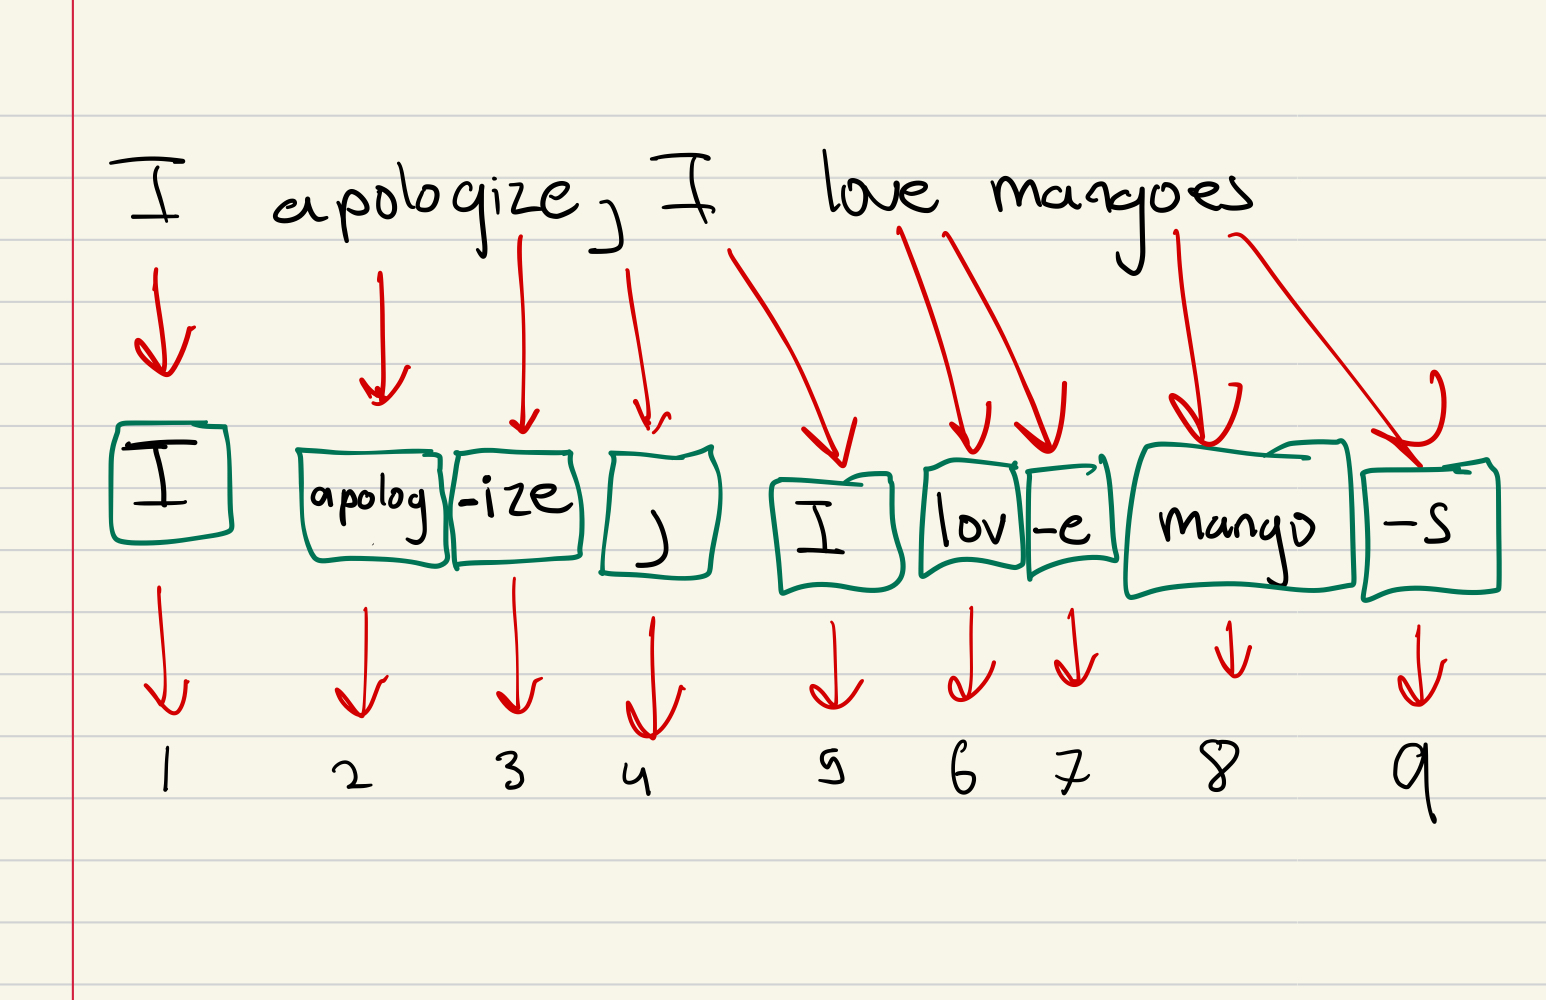 I apologize, I love mangoes
I apolog -ize , I lov -e mango -s
1 2 3 4 5 6 7 8 9